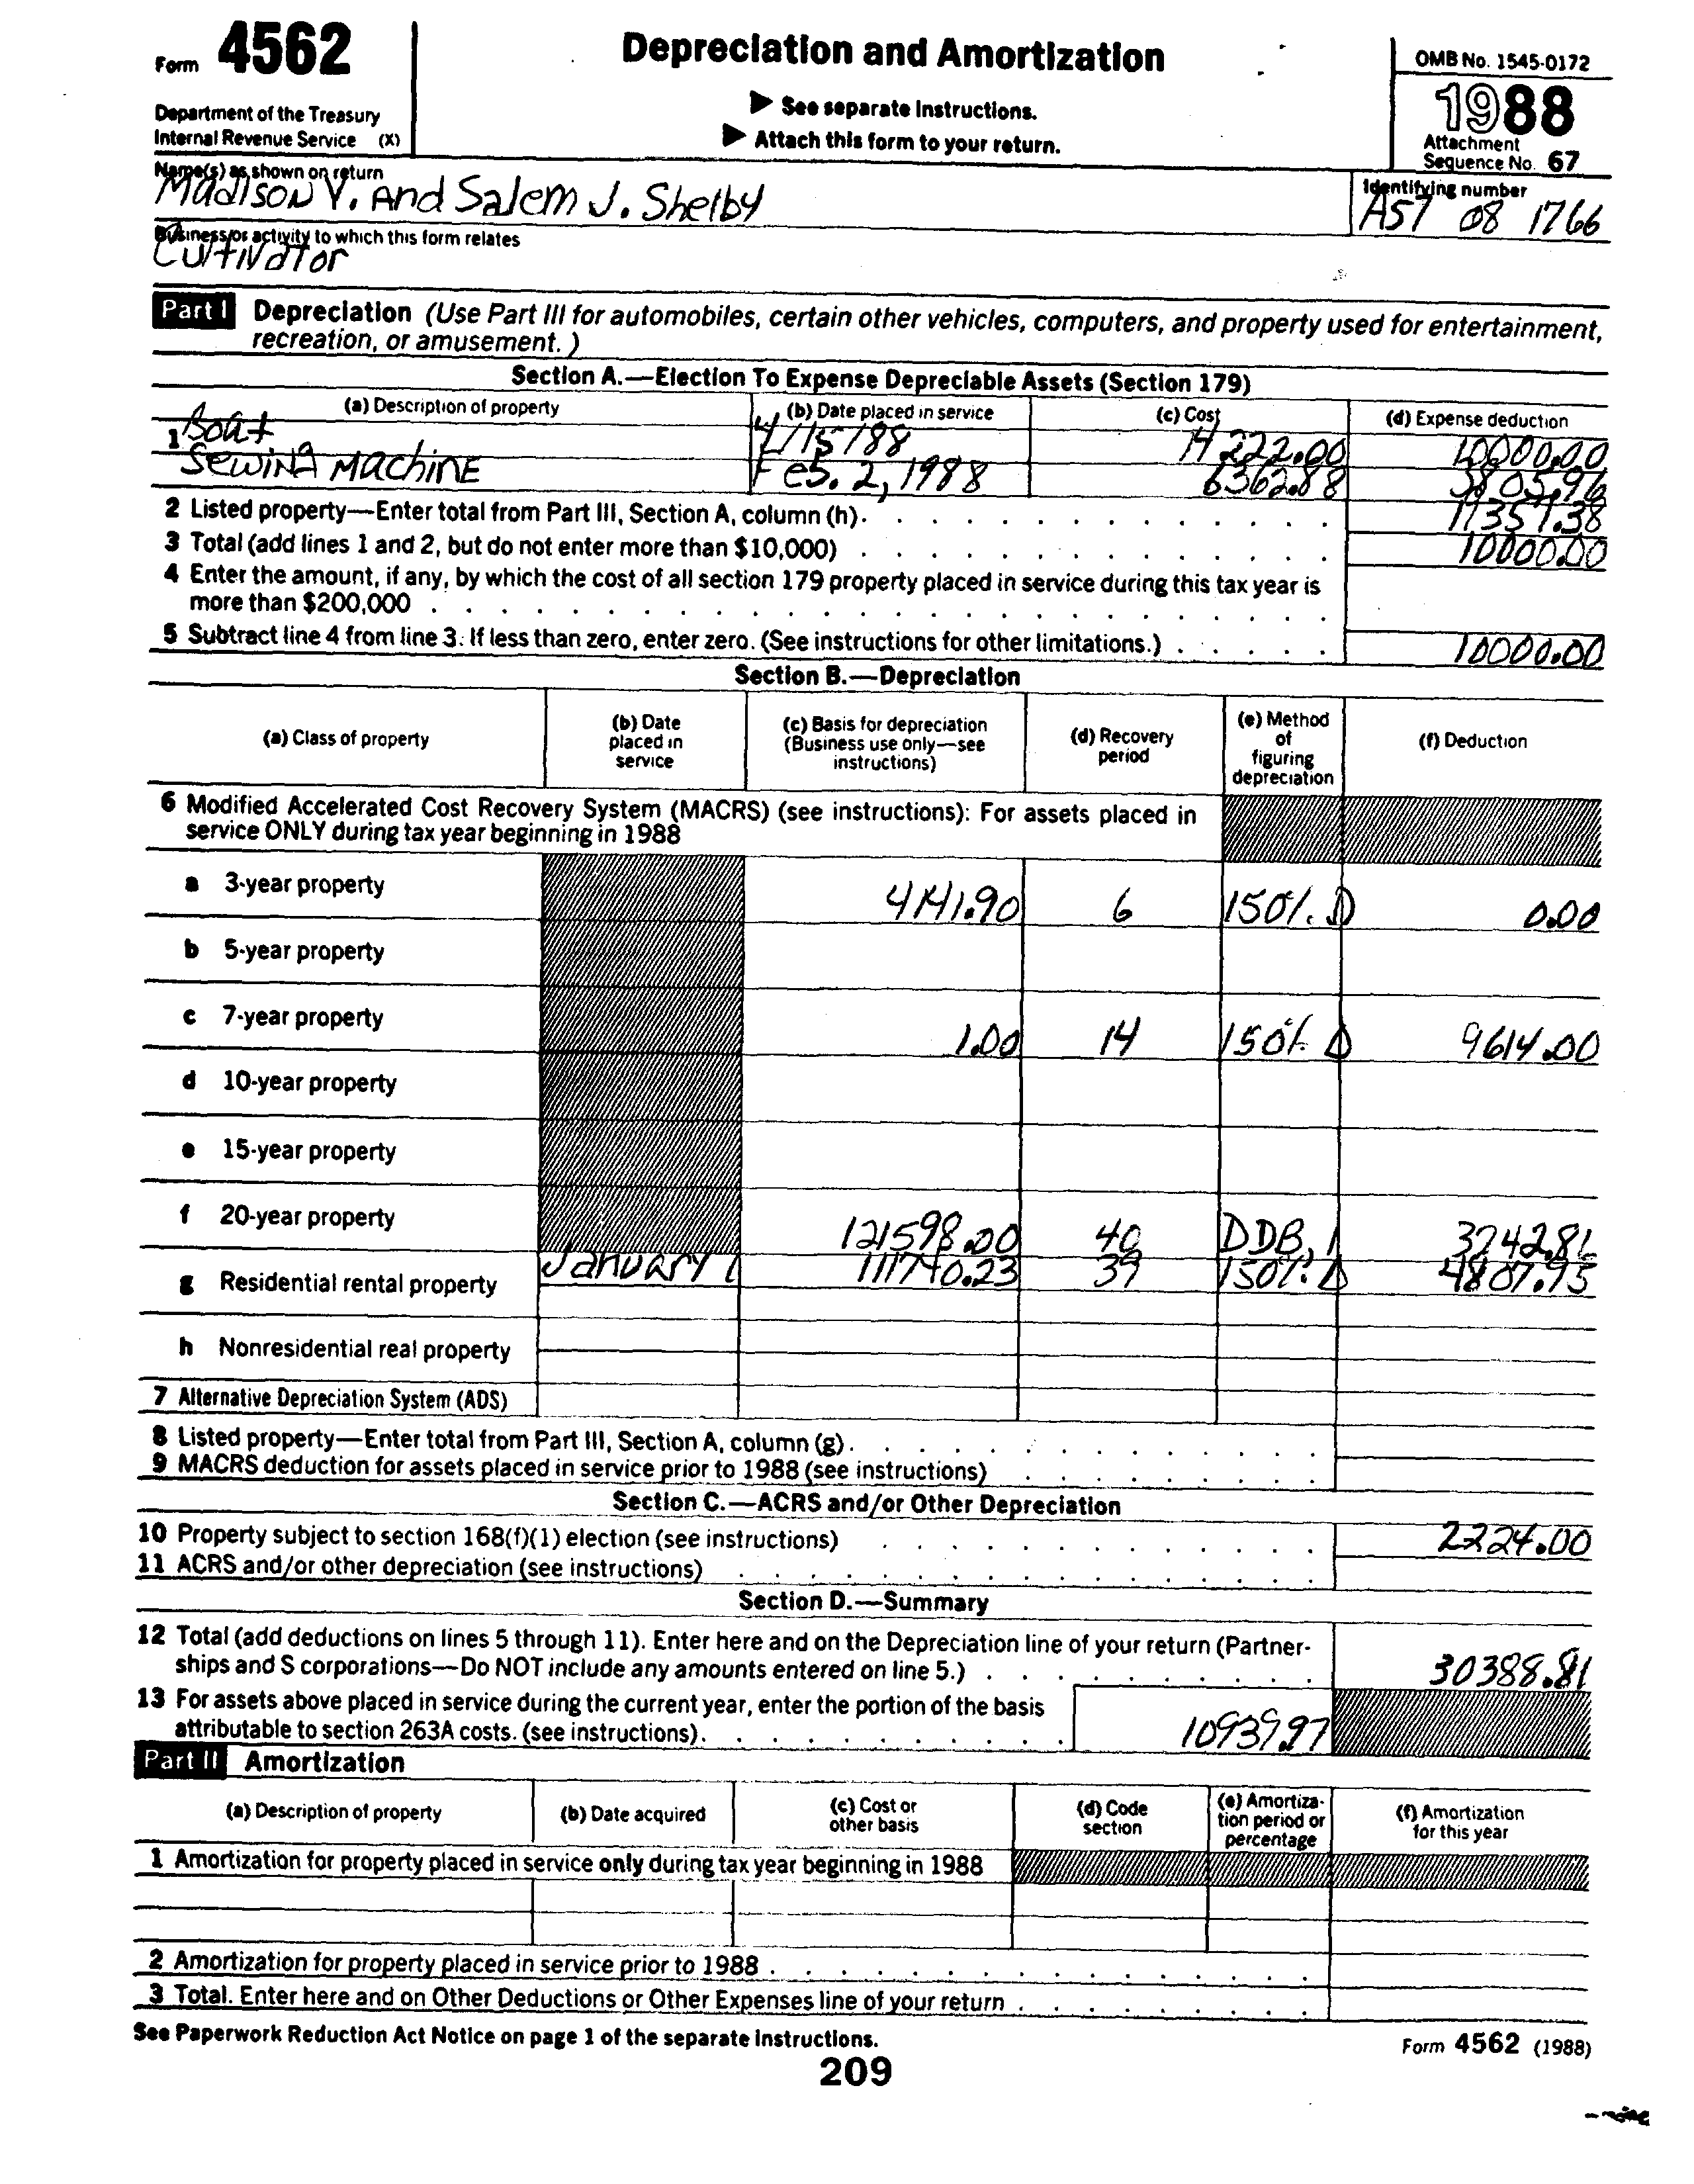 Form 4562
Depreciation and Amortization
OMB No. 1545-0172
▶ See separate Instructions.
▶ Attach this form to your return.
1988
Department of the Treasury
Internal Revenue Service (X)
Attachment
Sequence No. 67
Name(s) as shown on return
Madison Y. And Salem J. Shelby
Identifying number
AS7 08 1766
Business or activity to which this form relates
Cultivator
Part I Depreciation (Use Part III for automobiles, certain other vehicles, computers, and property used for entertainment,
recreation, or amusement.)
Section A.—Election To Expense Depreciable Assets (Section 179)
(a) Description of property (b) Date placed in service (c) Cost (d) Expense deduction
1 Boat 4/15/88 14222.00 10000.00
Sewing Machine Feb. 2, 1988 6362.88 3805.96
2 Listed property—Enter total from Part III, Section A, column (h). 11357.38
3 Total (add lines 1 and 2, but do not enter more than $10,000) 10000.00
4 Enter the amount, if any, by which the cost of all section 179 property placed in service during this tax year is
more than $200,000
5 Subtract line 4 from line 3. If less than zero, enter zero. (See instructions for other limitations.) 10000.00
Section B.—Depreciation
(a) Class of property
(b) Date
placed in
service
(c) Basis for depreciation
(Business use only—see
instructions)
(d) Recovery
period
(e) Method
of
figuring
depreciation
(f) Deduction
6 Modified Accelerated Cost Recovery System (MACRS) (see instructions): For assets placed in
service ONLY during tax year beginning in 1988
a 3-year property 4141.90 6 150% D 0.00
b 5-year property
c 7-year property 1.00 14 150% D 9614.00
d 10-year property
e 15-year property
f 20-year property 121598.00 40 DDB, 3742.86
g Residential rental property January 111740.23 39 150% D 4807.95
h Nonresidential real property
7 Alternative Depreciation System (ADS)
8 Listed property—Enter total from Part III, Section A, column (g).
9 MACRS deduction for assets placed in service prior to 1988 (see instructions)
Section C.—ACRS and/or Other Depreciation
10 Property subject to section 168(f)(1) election (see instructions) 2224.00
11 ACRS and/or other depreciation (see instructions)
Section D.—Summary
12 Total (add deductions on lines 5 through 11). Enter here and on the Depreciation line of your return (Partner-
ships and S corporations—Do NOT include any amounts entered on line 5.) 30388.81
13 For assets above placed in service during the current year, enter the portion of the basis
attributable to section 263A costs. (see instructions). 10939.97
Part II Amortization
(a) Description of property
(b) Date acquired
(c) Cost or
other basis
(d) Code
section
(e) Amortiza-
tion period or
percentage
(f) Amortization
for this year
1 Amortization for property placed in service only during tax year beginning in 1988
2 Amortization for property placed in service prior to 1988
3 Total. Enter here and on Other Deductions or Other Expenses line of your return
See Paperwork Reduction Act Notice on page 1 of the separate Instructions.
Form 4562 (1988)
209